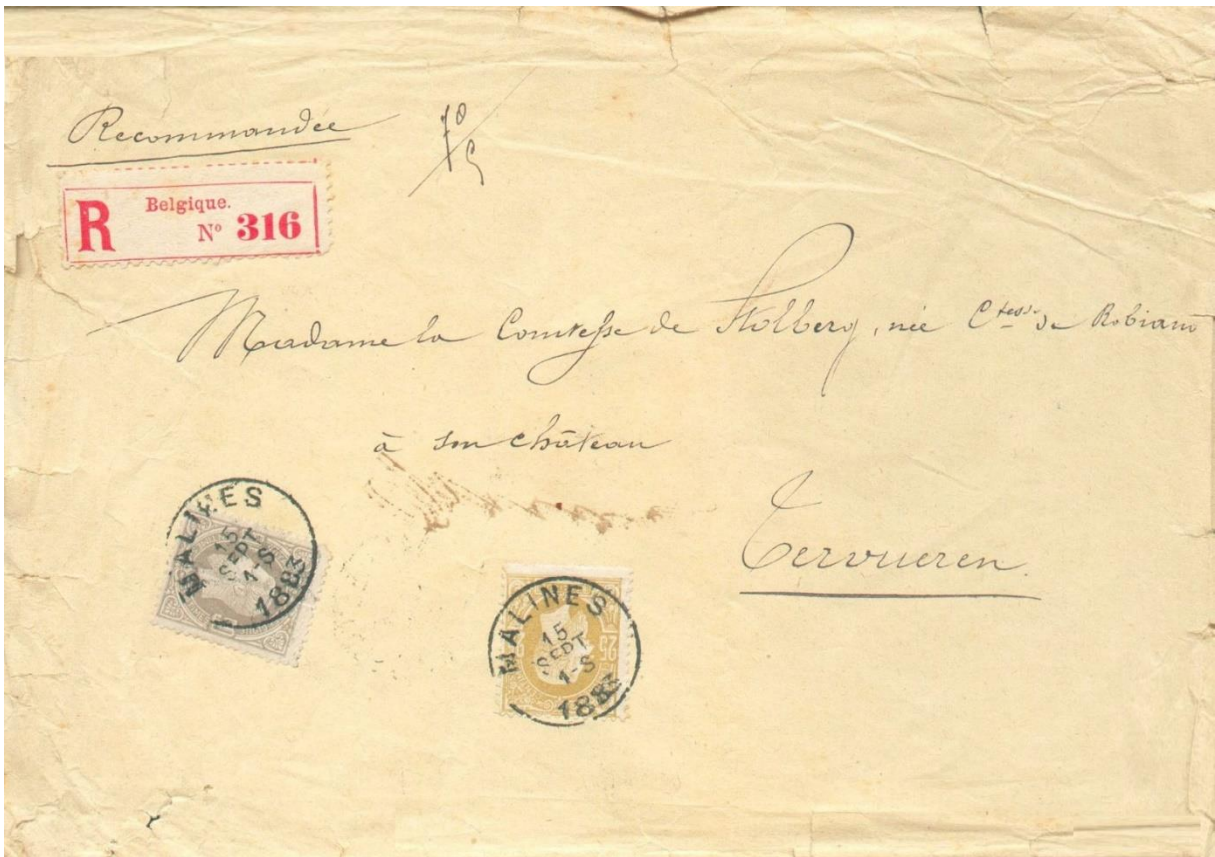 Recommandée
R Belgique.
Nº 316
Madame la Comtesse de Stolberg, née Ctesse de Robiano
à son château
Tervueren
MALINES
15
SEPT
1-S
1883
MALINES
15
SEPT
1-S
1883
25
25